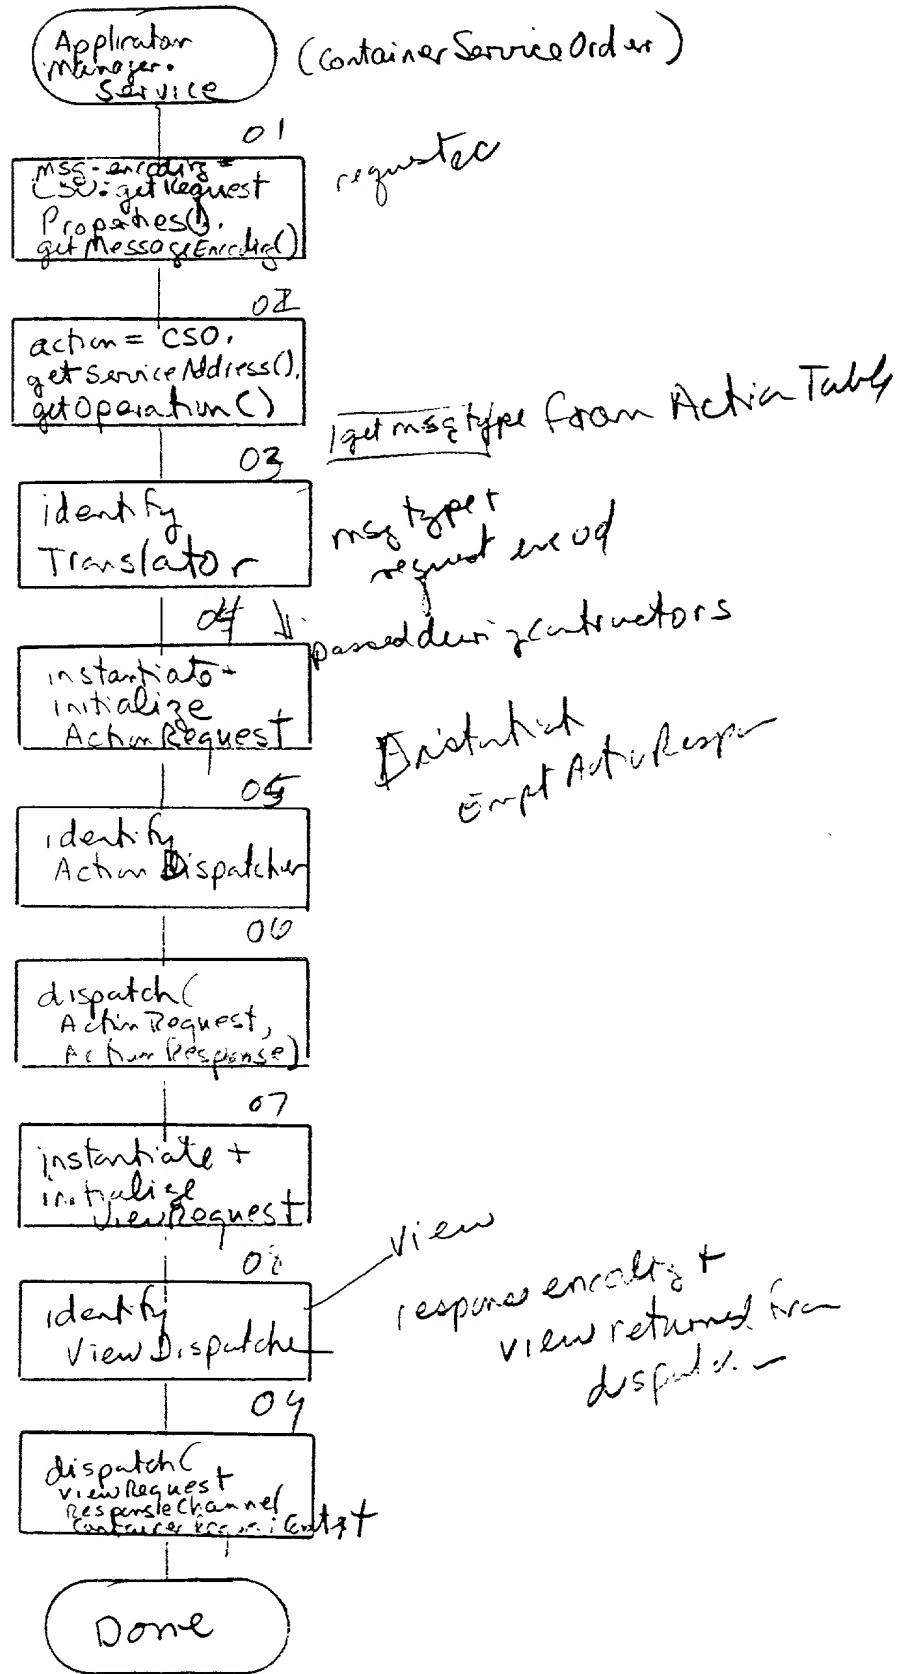 Application
Manager.
Service
(ContainerServiceOrder)
01
msg-encoding =
CSO.getRequest
Properties().
getMessageEncoding()
02
action = CSO.
getServiceAddress().
getOperation()
get msg type from Action Table
03
identify
Translator
msg type +
request encod
04
passed during contructors
instantiate +
initialize
ActionRequest
05
identify
Action Dispatcher
06
dispatch(
ActionRequest,
ActionResponse)
07
instantiate +
initialize
ViewRequest
view
08
identify
View Dispatcher
response encoding +
view returned from
09
dispatch(
viewRequest
ResponseChannel
Done